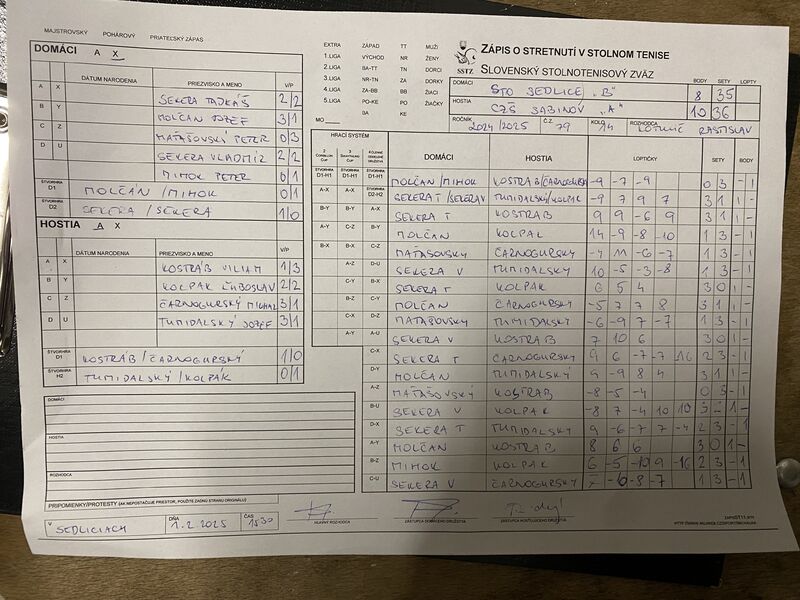 MAJSTROVSKÝ POHÁROVÝ PRIATEĽSKÝ ZÁPAS
DOMÁCI A X
DÁTUM NARODENIA PRIEZVISKO A MENO V/P
A X SEKERA TADEÁŠ 2/2
B Y MOLČAN JOZEF 3/1
C Z MAŤAŠOVSKÝ PETER 0/3
D U SEKERA VLADIMÍR 2/2
MIMOK PETER 0/1
ŠTVORHRA D1 MOLČAN / MIMOK 0/1
ŠTVORHRA D2 SEKERA / SEKERA 1/0
HOSTIA A X
DÁTUM NARODENIA PRIEZVISKO A MENO V/P
A X KOSTRÁB VILIAM 1/3
B Y KOLPAK ĽUBOSLAV 2/2
C Z ČARNOGURSKÝ MICHAL 3/1
D U TUMIDALSKÝ JOZEF 3/1
ŠTVORHRA D1 KOSTRÁB / ČARNOGURSKÝ 1/0
ŠTVORHRA H2 TUMIDALSKÝ / KOLPÁK 0/1
DOMÁCI
HOSTIA
ROZHODCA
PRIPOMIENKY/PROTESTY (AK NEPOSTAČUJE PRIESTOR, POUŽITE ZADNÚ STRANU ORIGINÁLU)
V SEDLICIACH DŇA 1.2.2025 ČAS 1530
HLAVNÝ ROZHODCA ZÁSTUPCA DOMÁCEHO DRUŽSTVA ZÁSTUPCA HOSŤUJÚCEHO DRUŽSTVA
EXTRA ZÁPAD TT MUŽI
1.LIGA VÝCHOD NR ŽENY
2.LIGA BA-TT TN DORCI
3.LIGA NR-TN ZA DORKY
4.LIGA ZA-BB BB ŽIACI
5.LIGA PO-KE PO ŽIAČKY
MO BA KE
SSTZ
ZÁPIS O STRETNUTÍ V STOLNOM TENISE
SLOVENSKÝ STOLNOTENISOVÝ ZVÄZ
BODY SETY LOPTY
DOMÁCI STO SEDLICE "B" 8 35
HOSTIA CZŠ SABINOV "A" 10 36
ROČNÍK 2024/2025 Č.Z. 79 KOLO 14 ROZHODCA RASTISLAV
HRACÍ SYSTÉM DOMÁCI HOSTIA LOPTIČKY SETY BODY
D1-H1 D1-H1 D1-H1 MOLČAN / MIMOK KOSTRÁB/ČARNOGURSKÝ -9 -7 -9 0 3 - 1
A-X A-X D2-H2 SEKERA T / SEKERA V TUMIDALSKÝ/KOLPAK -9 7 9 7 3 1 1 -
B-Y B-Y A-X SEKERA T KOSTRÁB 9 9 -6 9 3 1 1 -
A-Y C-Z B-Y MOLČAN KOLPAK 14 -9 -8 -10 1 3 - 1
B-X B-X C-Z MAŤAŠOVSKÝ ČARNOGURSKÝ -4 11 -6 -7 1 3 - 1
A-Z D-U SEKERA V TUMIDALSKÝ 10 -5 -3 -8 1 3 - 1
C-Y B-X SEKERA T KOLPAK 6 5 4 3 0 1 -
B-Z C-Y MOLČAN ČARNOGURSKÝ -5 7 7 8 3 1 1 -
C-X D-Z MAŤAŠOVSKÝ TUMIDALSKÝ -6 -9 7 -7 1 3 - 1
A-Y A-U SEKERA V KOSTRÁB 7 10 6 3 0 1 -
C-X SEKERA T ČARNOGURSKÝ 9 6 -7 -7 -16 2 3 - 1
D-Y MOLČAN TUMIDALSKÝ 4 -9 8 4 3 1 1 -
A-Z MAŤAŠOVSKÝ KOSTRÁB -8 -5 -4 0 3 - 1
B-U SEKERA V KOLPAK -8 7 -4 10 10 3 2 1 -
D-X SEKERA T TUMIDALSKÝ 9 -6 -7 7 -4 2 3 - 1
A-Y MOLČAN KOSTRÁB 8 6 6 3 0 1 -
B-Z MIMOK KOLPAK 6 -5 -10 9 -16 2 3 - 1
C-U SEKERA V ČARNOGURSKÝ -10 -8 -7 1 3 - 1